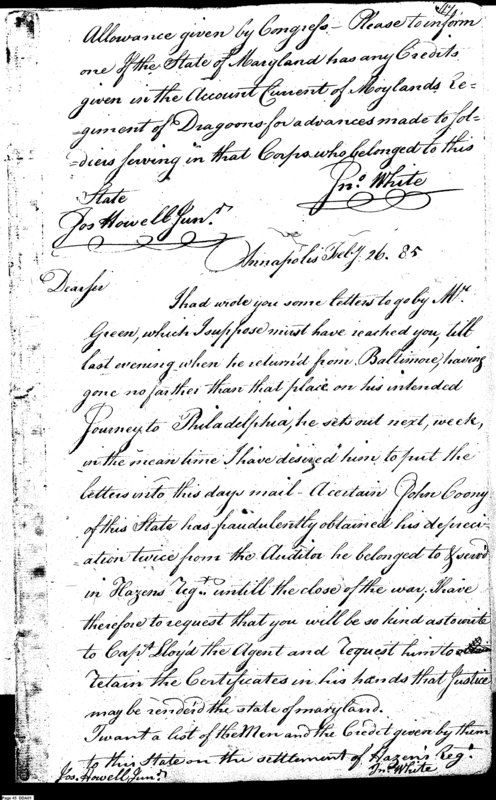 Allowance given by Congress - Please to inform
one if the State of Maryland has any Credits
given in the Account Current of Moylands Re-
-giment of Dragoons for advances made to sol-
-diers serving in that Corps who belonged to this
State
Jno. White
Jos Howell Junr.
Annapolis Feby. 26. 85
Dear sir
I had wrote you some letters to go by Mr.
Green, which I suppose must have reached you, till
last evening when he return'd from Baltimore, having
gone no farther than that place on his intended
Journey to Philadelphia, he sets out next, week,
in the mean time I have desired him to put the
letters into this days mail - A certain John Coony
of this State has fraudulently obtained his depreci-
-ation twice from the Auditor he belonged to & serv'd
in Hazens Regt. untill the close of the war, I have
therefore to request that you will be so kind as to write
to Capt. Lloyd the Agent and request him to
retain the Certificates in his hands that Justice
may be render'd the state of maryland.
I want a list of the Men and the Credit given by them
to this State on the settlement of Hazen's Regt.
Jos. Howell Junr.
Jno. White
Page 45 DDA01